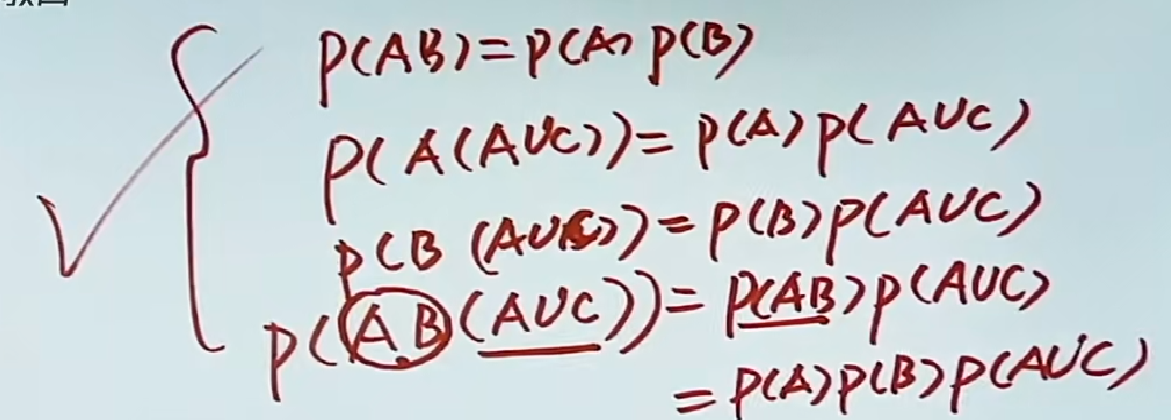 P(AB)=P(A)P(B)
P(A(AUC))=P(A)P(AUC)
P(B(AUC))=P(B)P(AUC)
P(AB(AUC))=P(AB)P(AUC)
=P(A)P(B)P(AUC)